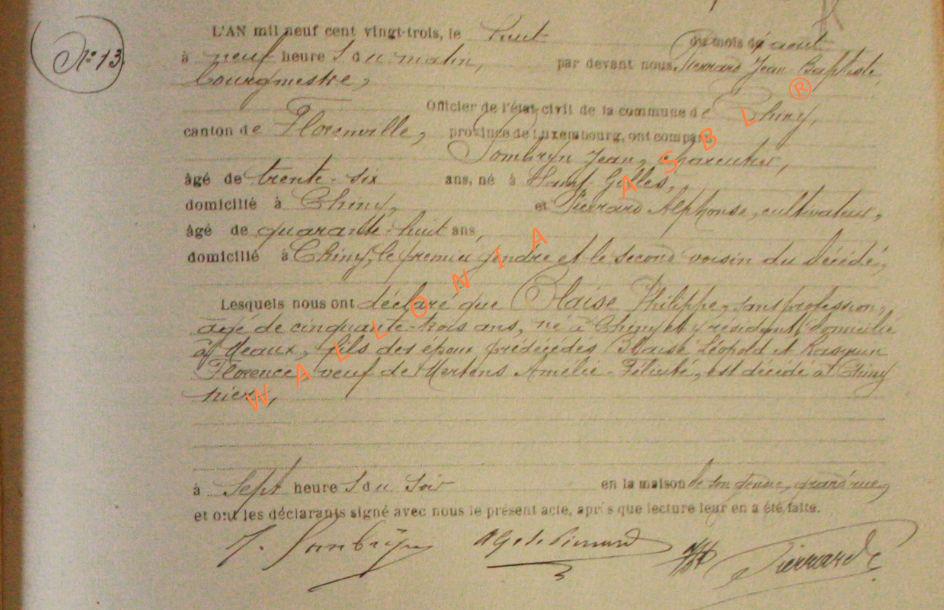 N° 13
L'AN mil neuf cent vingt-trois, le huit du mois de août
à neuf heure s du matin, par devant nous Pierrard Jean-Baptiste,
bourgmestre,
Officier de l'état-civil de la commune de Chiny,
canton de Florenville, province de Luxembourg, ont comparu
Jean, charpentier,
âgé de trente-six ans, né à Gilles,
domicilié à Chiny, et Pierrard Alphonse, cultivateur,
âgé de quarante-huit ans,
domicilié à Chiny, le premier gendre et le second voisin du décédé,
Lesquels nous ont déclaré que Blaise Philippe, sans profession,
âgé de cinquante-trois ans, né à Chiny et y résidant, domicilié
à Meaux, fils des époux prédécédés Blaise Léopold et
Florence, veuf de Mertens Amélie-Félicité, est décédé à Chiny
hier,
à sept heure s du soir en la maison de son gendre, grand'rue,
et ont les déclarants signé avec nous le présent acte, après que lecture leur en a été faite.
Pierrard
WALLONIA ASBL ®